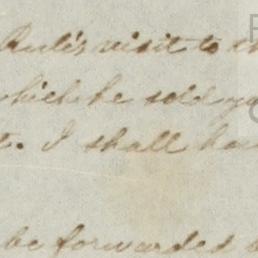 Rule's visit to
which he sold
t. I shall
be forwarded